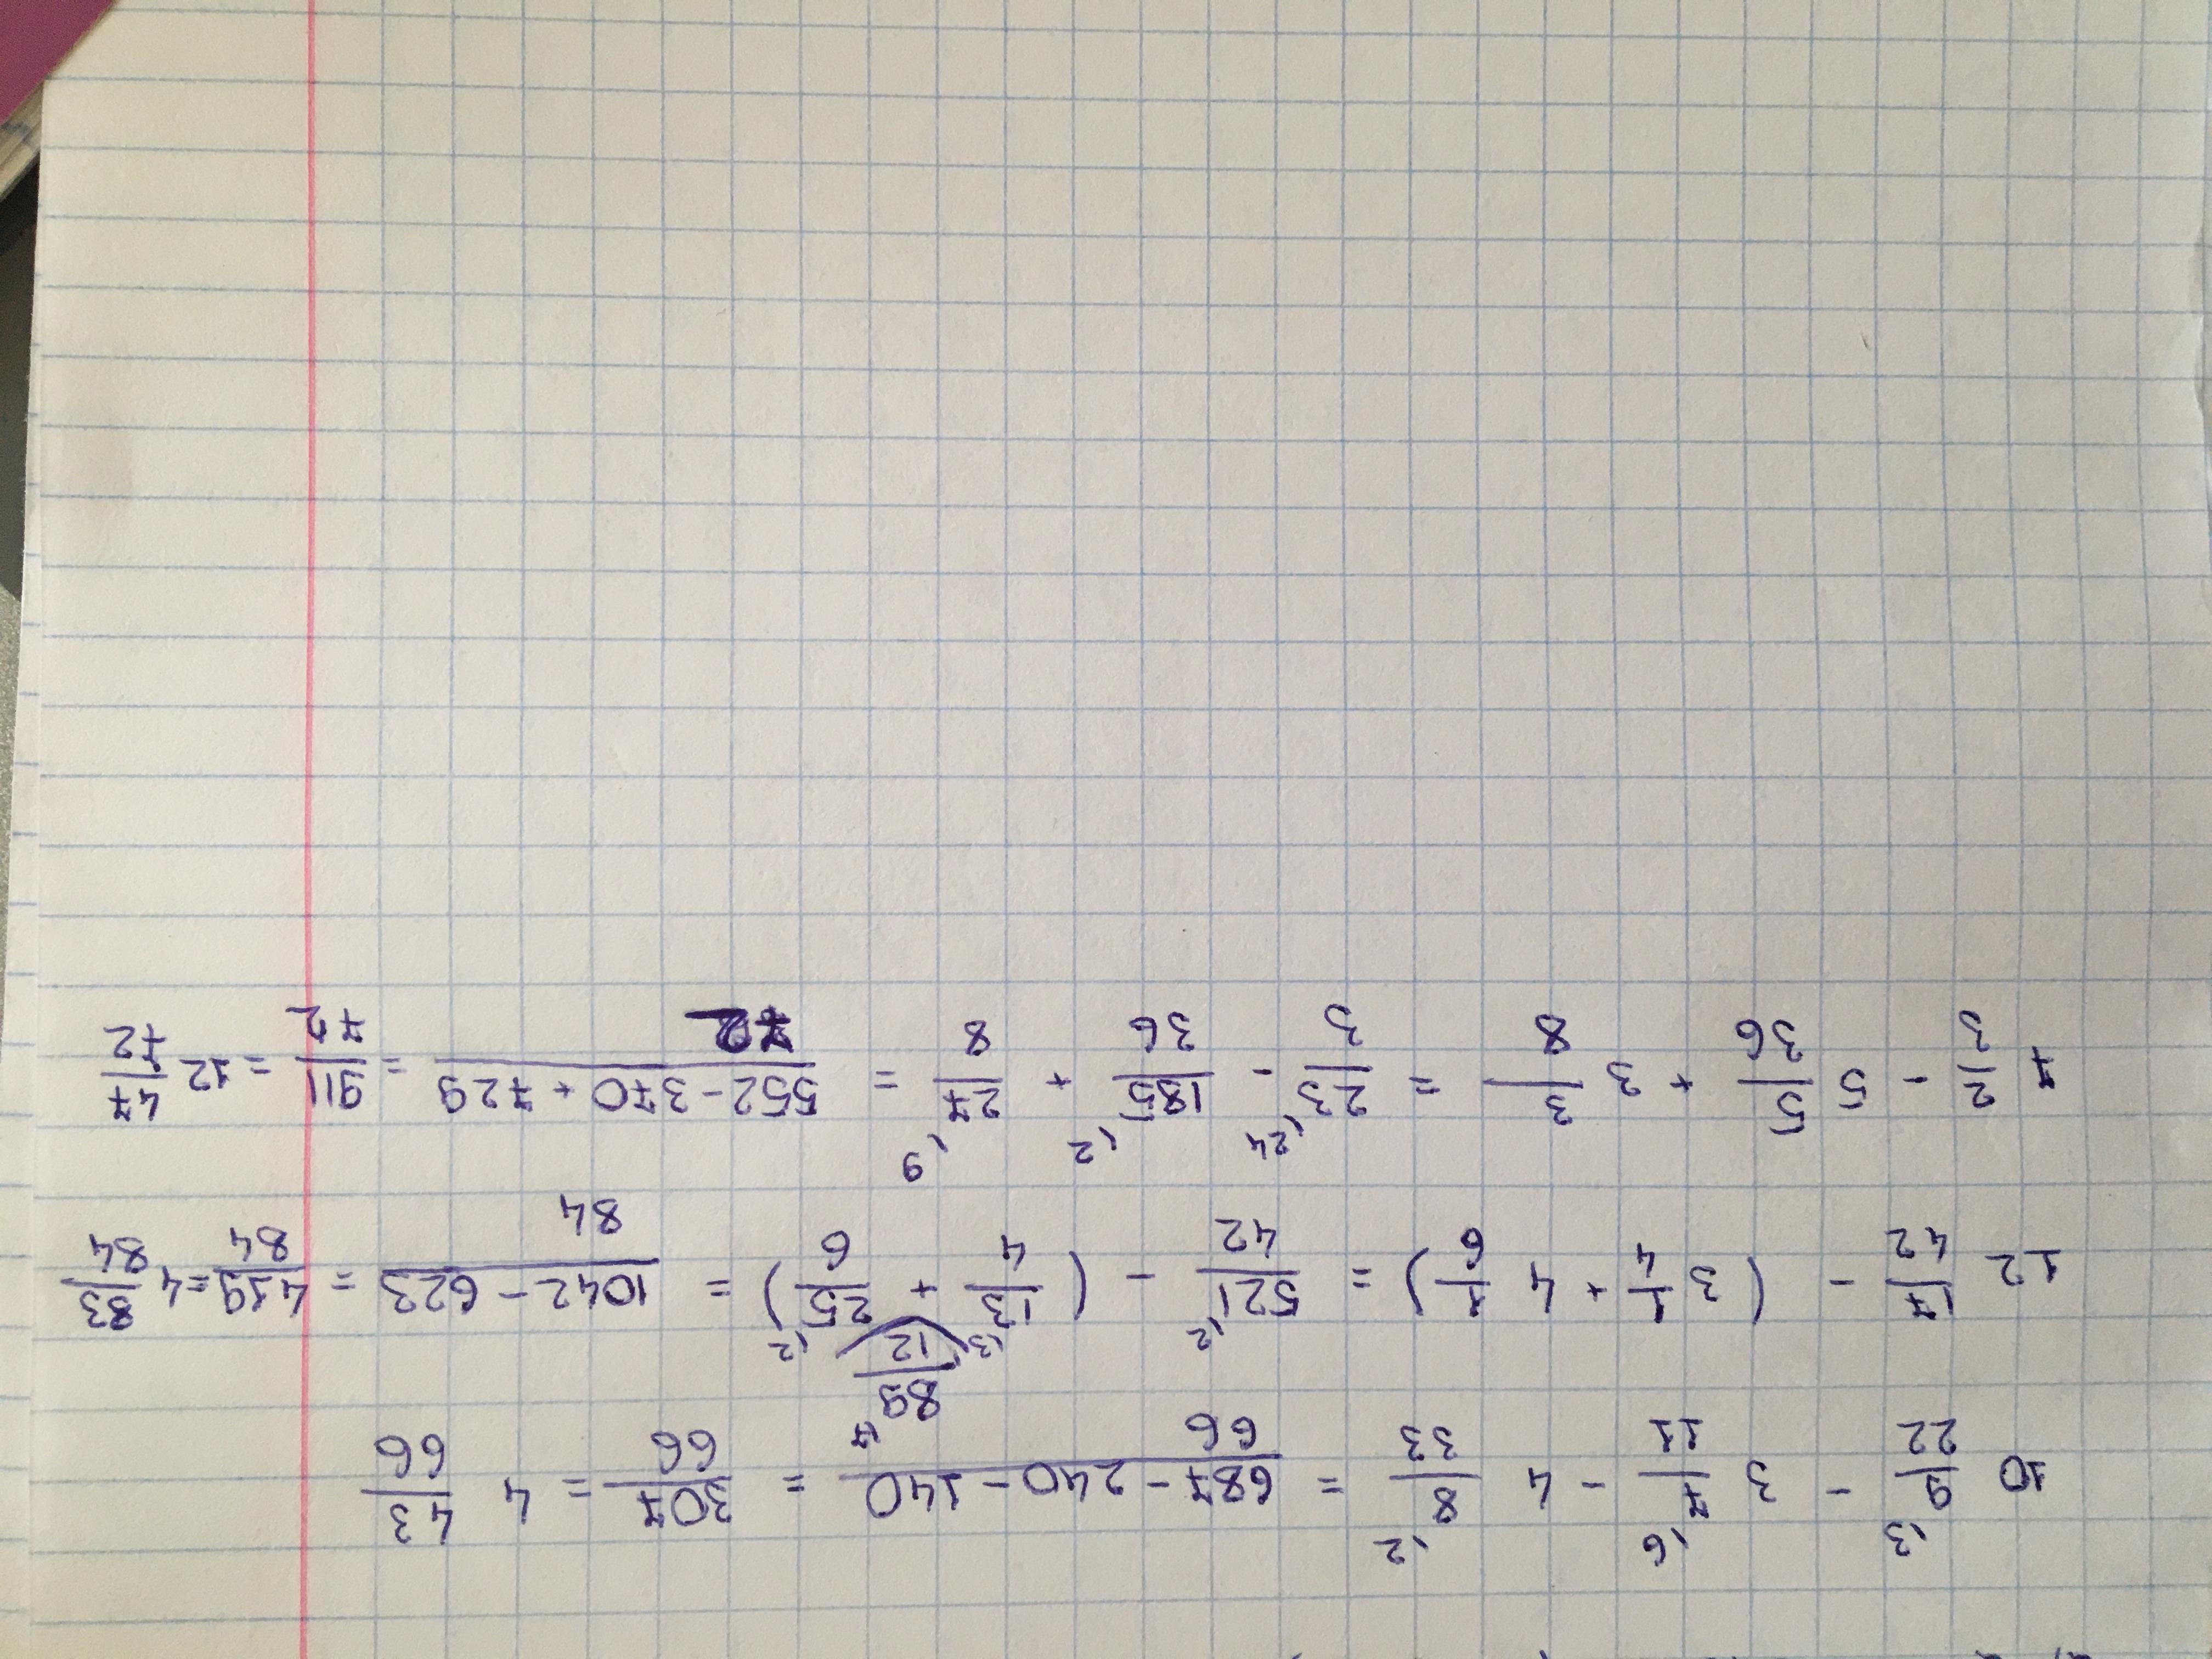 10 9/22 \3 - 3 7/11 \6 - 4 8/33 \2 = (687 - 240 - 140)/66 = 307/66 = 4 43/66
89/12 \7
12 17/42 - (3 1/4 + 4 1/6) = 521/42 \2 - (13/4 \3 + 25/6 \2) = (1042 - 623)/84 = 419/84 = 4 83/84
7 2/3 - 5 5/36 + 3 3/8 = 23/3 \24 - 185/36 \2 + 27/8 \9 = (552 - 370 + 729)/72 = 911/72 = 12 47/72